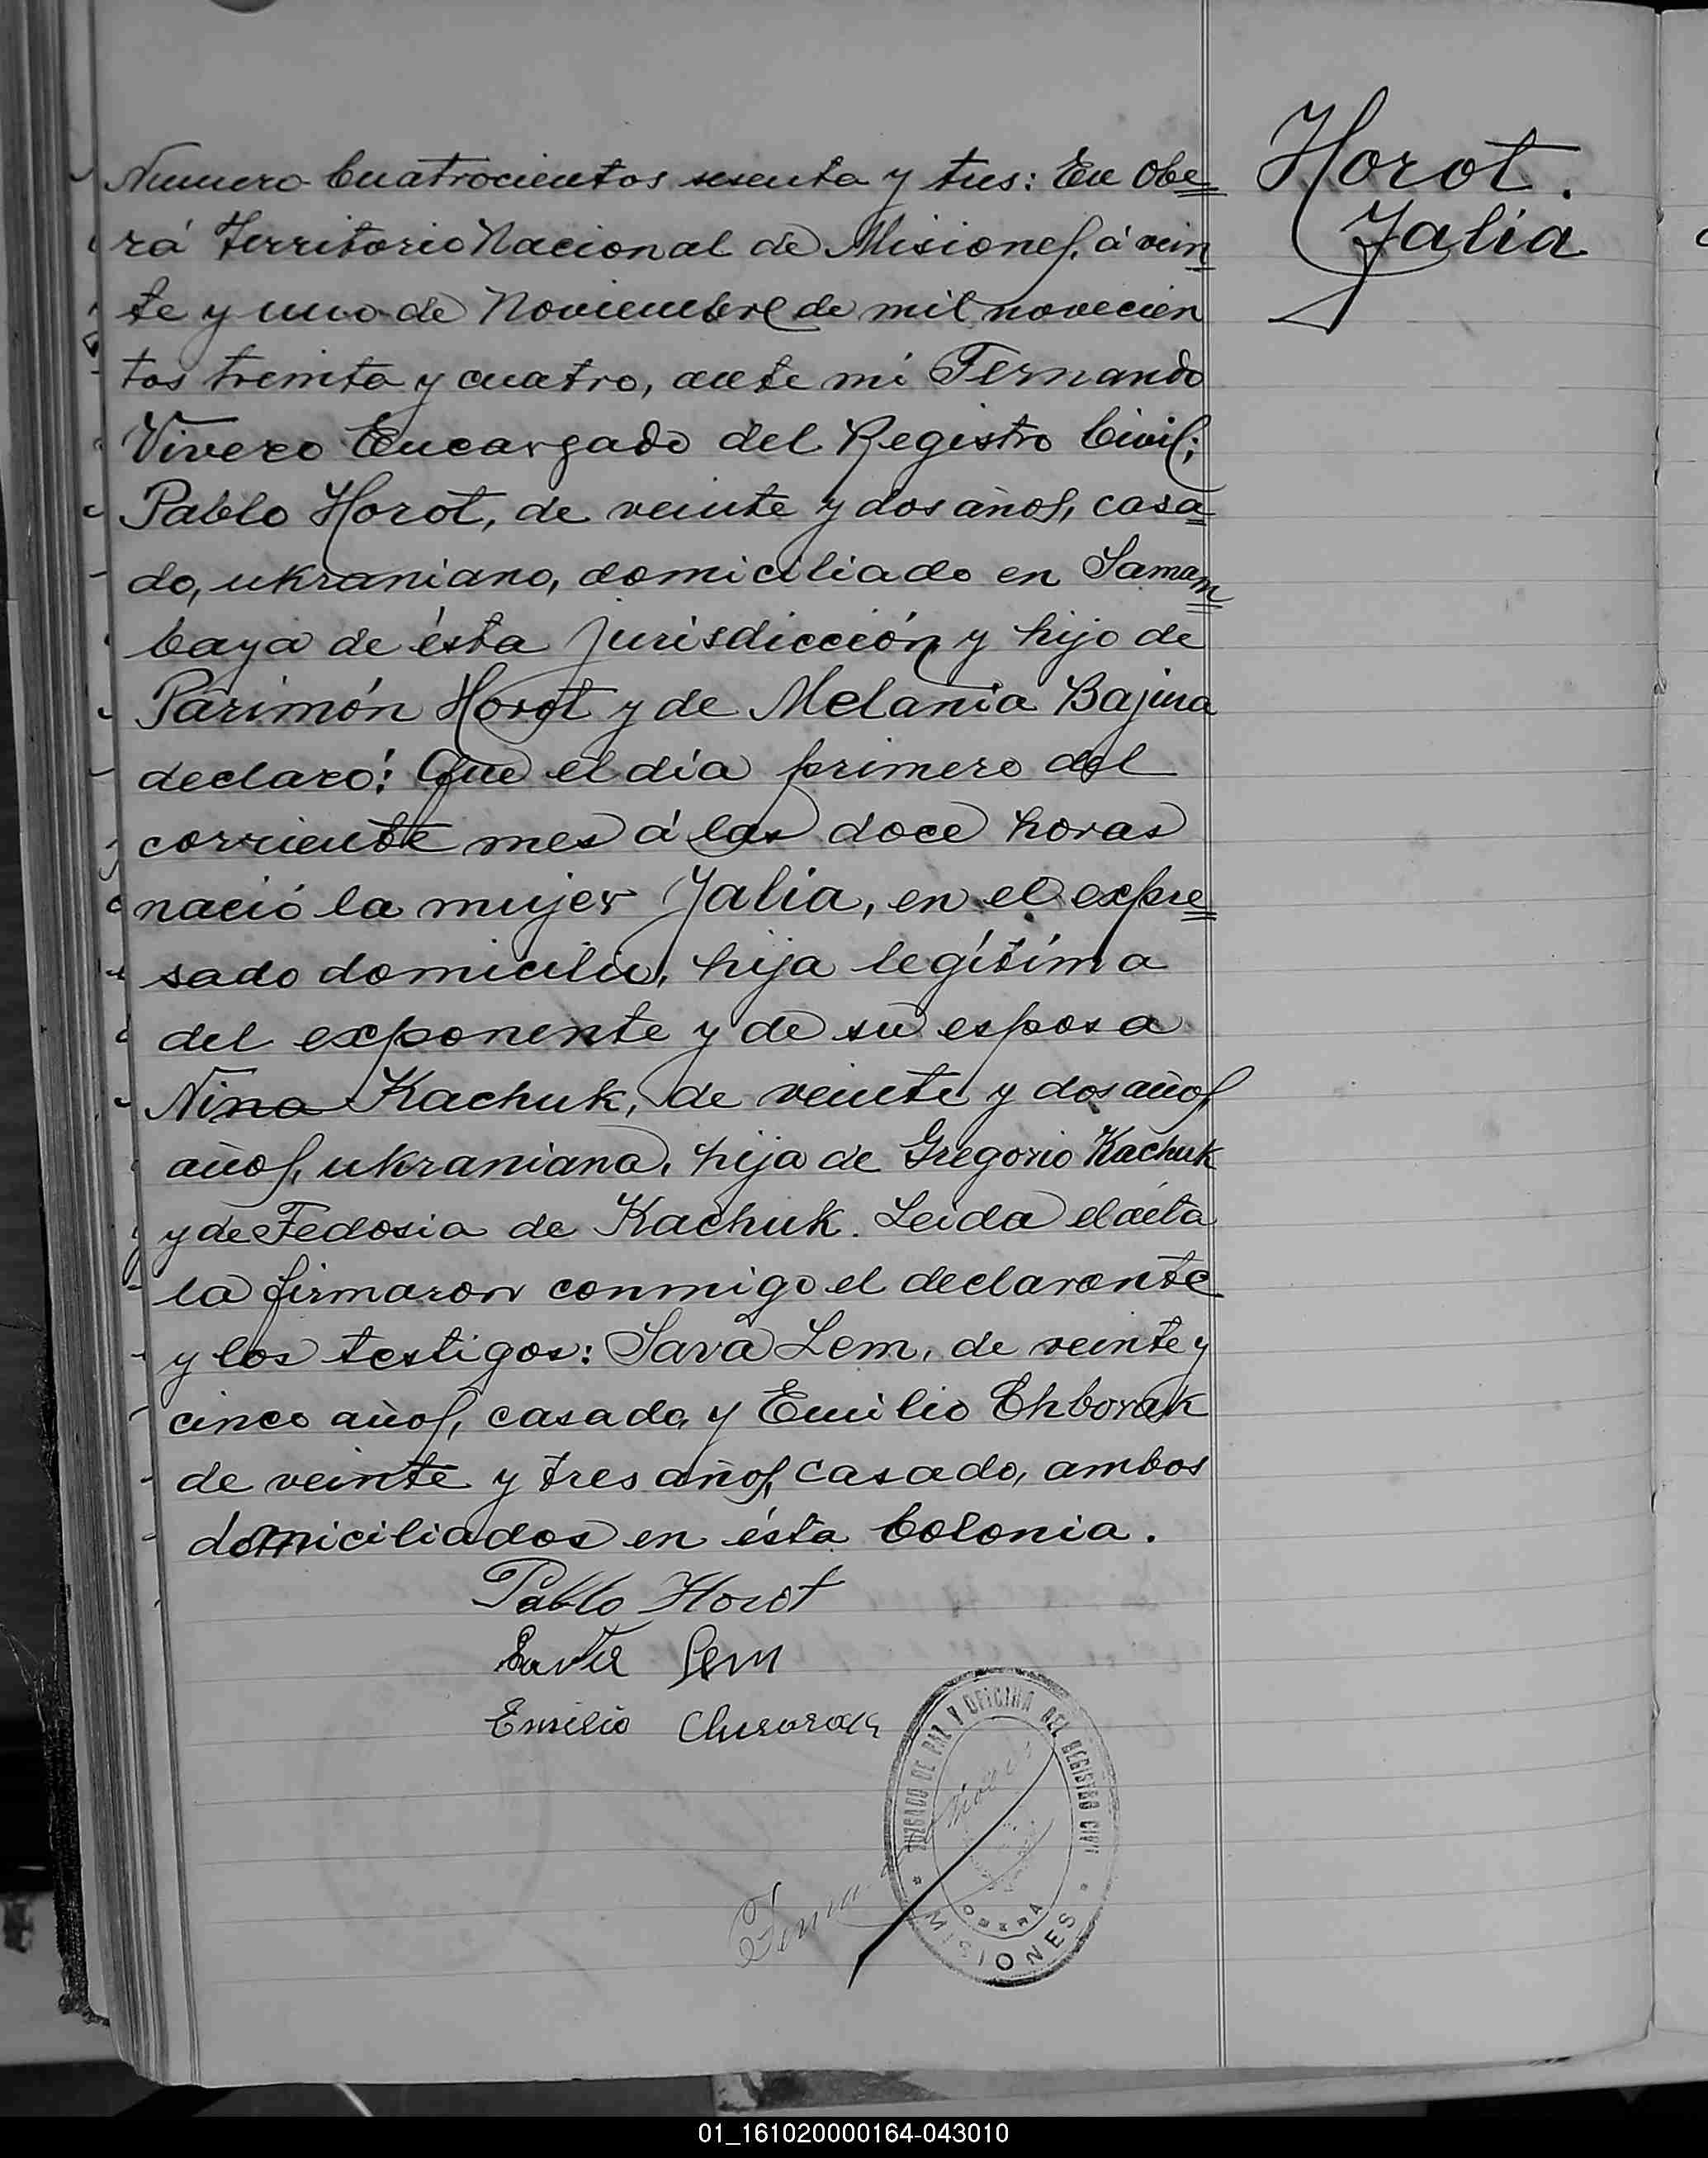 Horot.
Jalia
Numero Cuatrocientos sesenta y tres: En Obe
rá Territorio Nacional de Misiones, á vein
te y uno de Noviembre de mil novecien
tos treinta y cuatro, ante mi Fernando
Vivero Encargado del Registro Civil;
Pablo Horot, de veinte y dos años, casa
do, ukraniano, domiciliado en Samam
baya de ésta jurisdicción y hijo de
Parimón Horot y de Melania Bajina
declaró: Que el día primero del
corriente mes á las doce horas
nació la mujer Jalia, en el expre
sado domicilio, hija legítima
del exponente y de su esposa
Nina Kachuk, de veinte y dos años
años, ukraniana, hija de Gregorio Kachuk
y de Fedosia de Kachuk. Leida el acta
la firmaron conmigo el declarante
y los testigos: Sava Lem, de veinte y
cinco años, casado, y Emilio Chborak
de veinte y tres años, casado, ambos
domiciliados en ésta Colonia.
Pablo Horot
Sava Lem
Emilio
JUZGADO DE PAZ Y OFICINA DEL REGISTRO CIVIL
OBERA
MISIONES
01_161020000164-043010